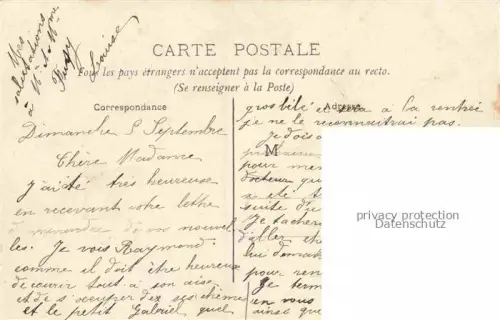 Mes
salutations
à Mr & Mme
Louise
CARTE POSTALE
Tous les pays étrangers n'acceptent pas la correspondance au recto.
(Se renseigner à la Poste)
Correspondance
Dimanche 5 Septembre
Chère Madame
J'ai été très heureuse
en recevant votre lettre
de vos nouvel
les. Je vois Raymond
comme il doit être heureux
de courir tout à son aise
et de s'occuper de
et le petit Gabriel quel
Adresse
gros bébé et à la rentrée
je ne le reconnaitrai pas.
Je dois
M
pour
docteur
a été
suite d'u
Je tacher
d'aller
lui deman
pour
Je term
en vous
ainsi que
privacy protection
Datenschutz